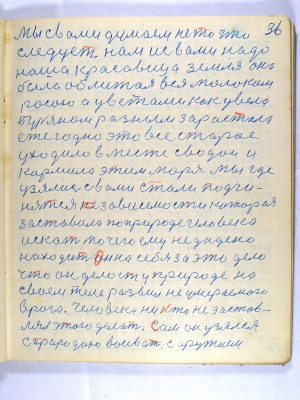 36
Мы с вами думаем не то что
следует. нам и с вами надо
наша красавица земля она
была облитая вся молоком
росою а цветами как увела
буряном разным зарастала
ежегодно это все старое
уходило в месте с водой и
кормила этим моря. мы где
узялись с вами стали подчи-
нятся независемости которая
заставила по природе человека
искат то чего ему не дадено
находит Он на себя за это дело
что он делост у природе на
своем теле развил не умераемого
врага. Человека ни кто не застав-
лял этого делат. Сам он узялся
с природою воюват. с оружием